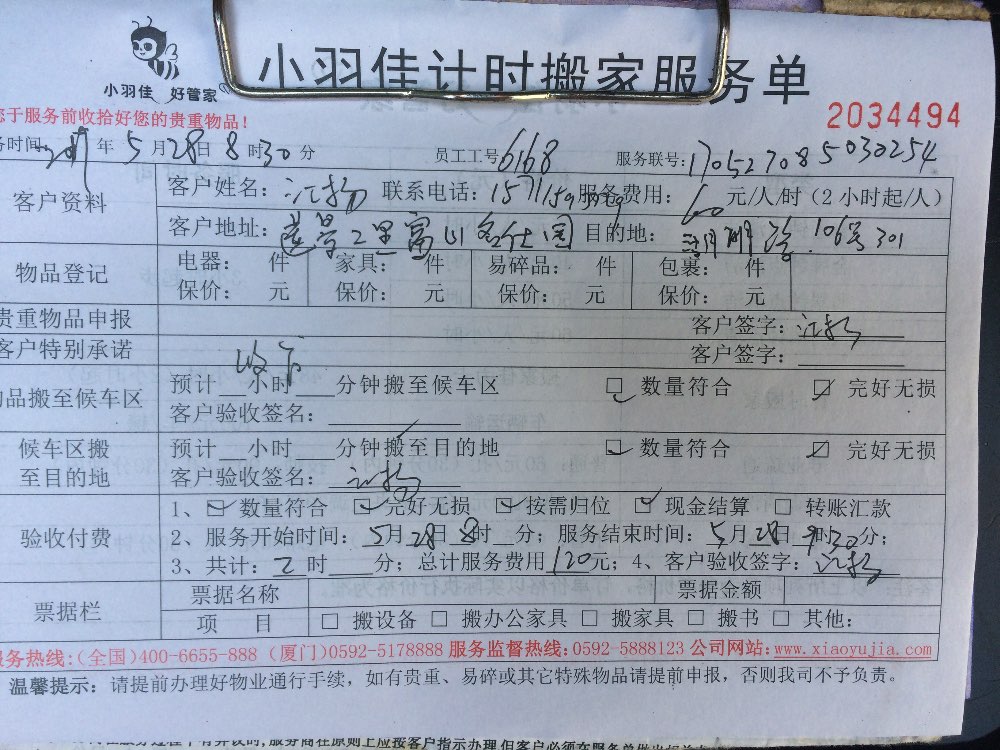 小羽佳 好管家
小羽佳计时搬家服务单
您于服务前收拾好您的贵重物品！
2034494
务时间 年 5月28日8时30分 员工工号6168 服务联号:170527085030254
客户资料
客户姓名：江扬 联系电话：服务费用：60元/人/时（2小时起/人）
客户地址：莲景二里富山名仕园 目的地：106号301
物品登记
电器： 件 家具： 件 易碎品： 件 包裹： 件
保价： 元 保价： 元 保价： 元 保价： 元
贵重物品申报 客户签字：江扬
客户特别承诺 客户签字：
物品搬至候车区
预计 小时 分钟搬至候车区 数量符合 完好无损
客户验收签名：
候车区搬至目的地
预计 小时 分钟搬至目的地 数量符合 完好无损
客户验收签名：江扬
验收付费
1、数量符合 完好无损 按需归位 现金结算 转账汇款
2、服务开始时间：5月28日8时 分；服务结束时间：5月28日9时30分；
3、共计：2时 分；总计服务费用120元；4、客户验收签字：江扬
票据栏
票据名称 票据金额
项 目 搬设备 搬办公家具 搬家具 搬书 其他：
服务热线:(全国)400-6655-888 (厦门)0592-5178888 服务监督热线:0592-5888123 公司网站:www.xiaoyujia.com
温馨提示：请提前办理好物业通行手续，如有贵重、易碎或其它特殊物品请提前申报，否则我司不予负责。